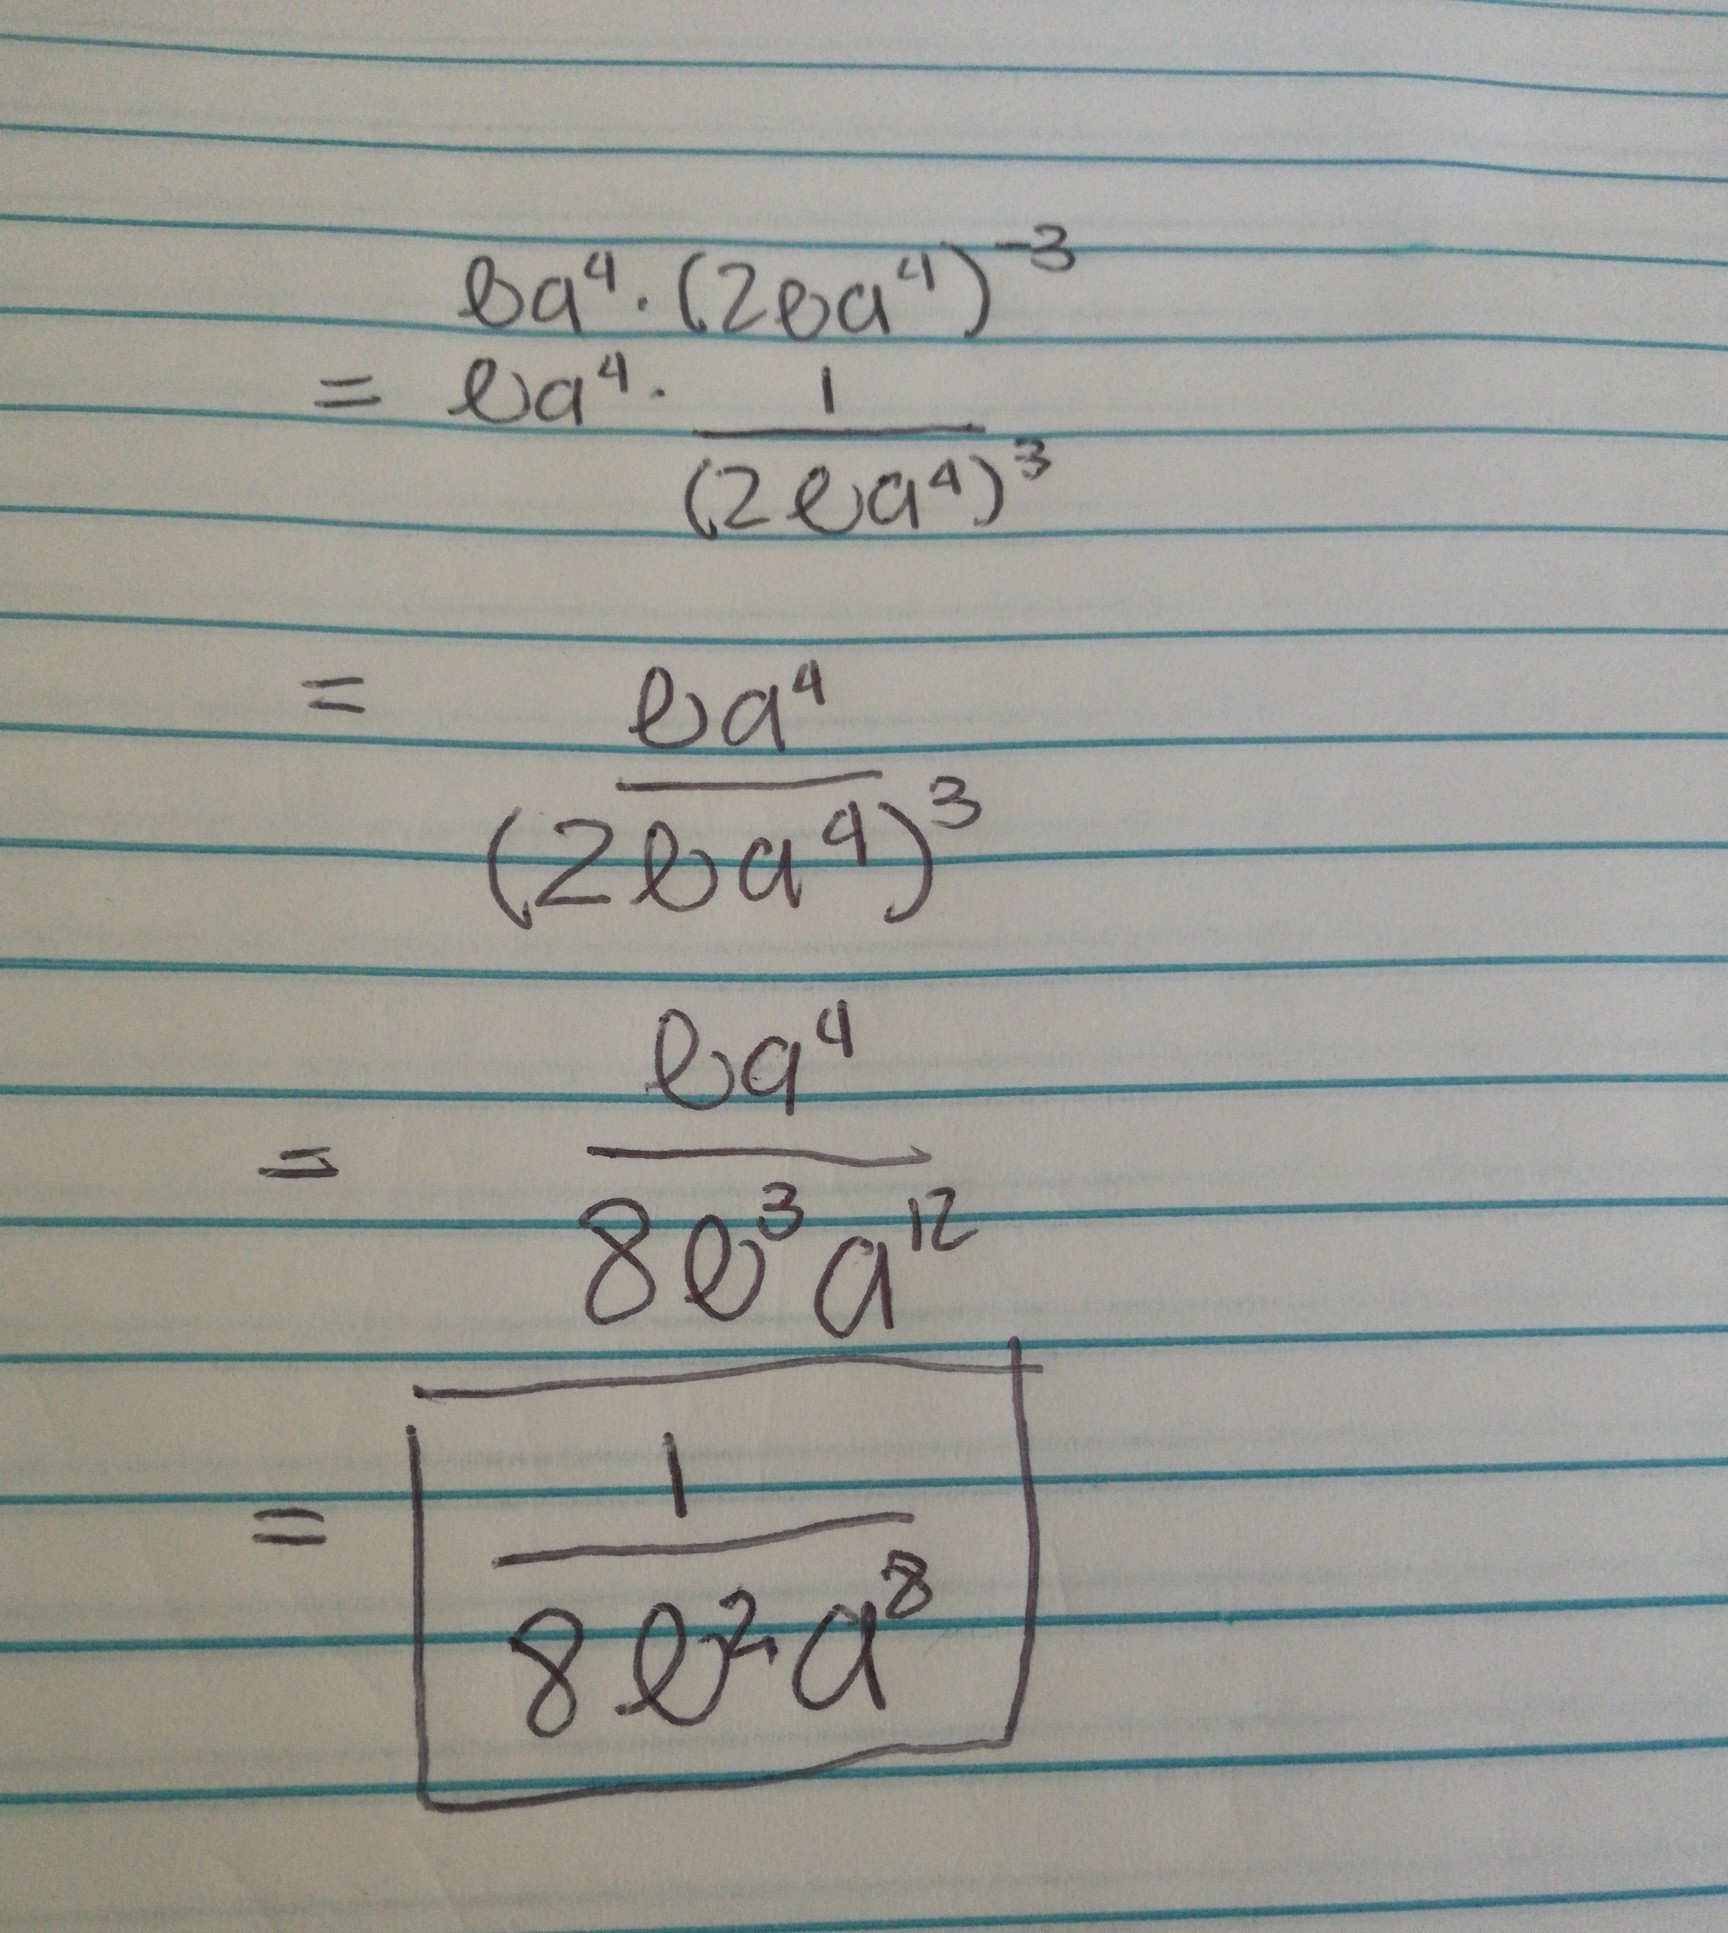 ba⁴ · (2ba⁴)⁻³
= ba⁴ · 1/(2ba⁴)³
= ba⁴/(2ba⁴)³
= ba⁴/8b³a¹²
= 1/8b²a⁸